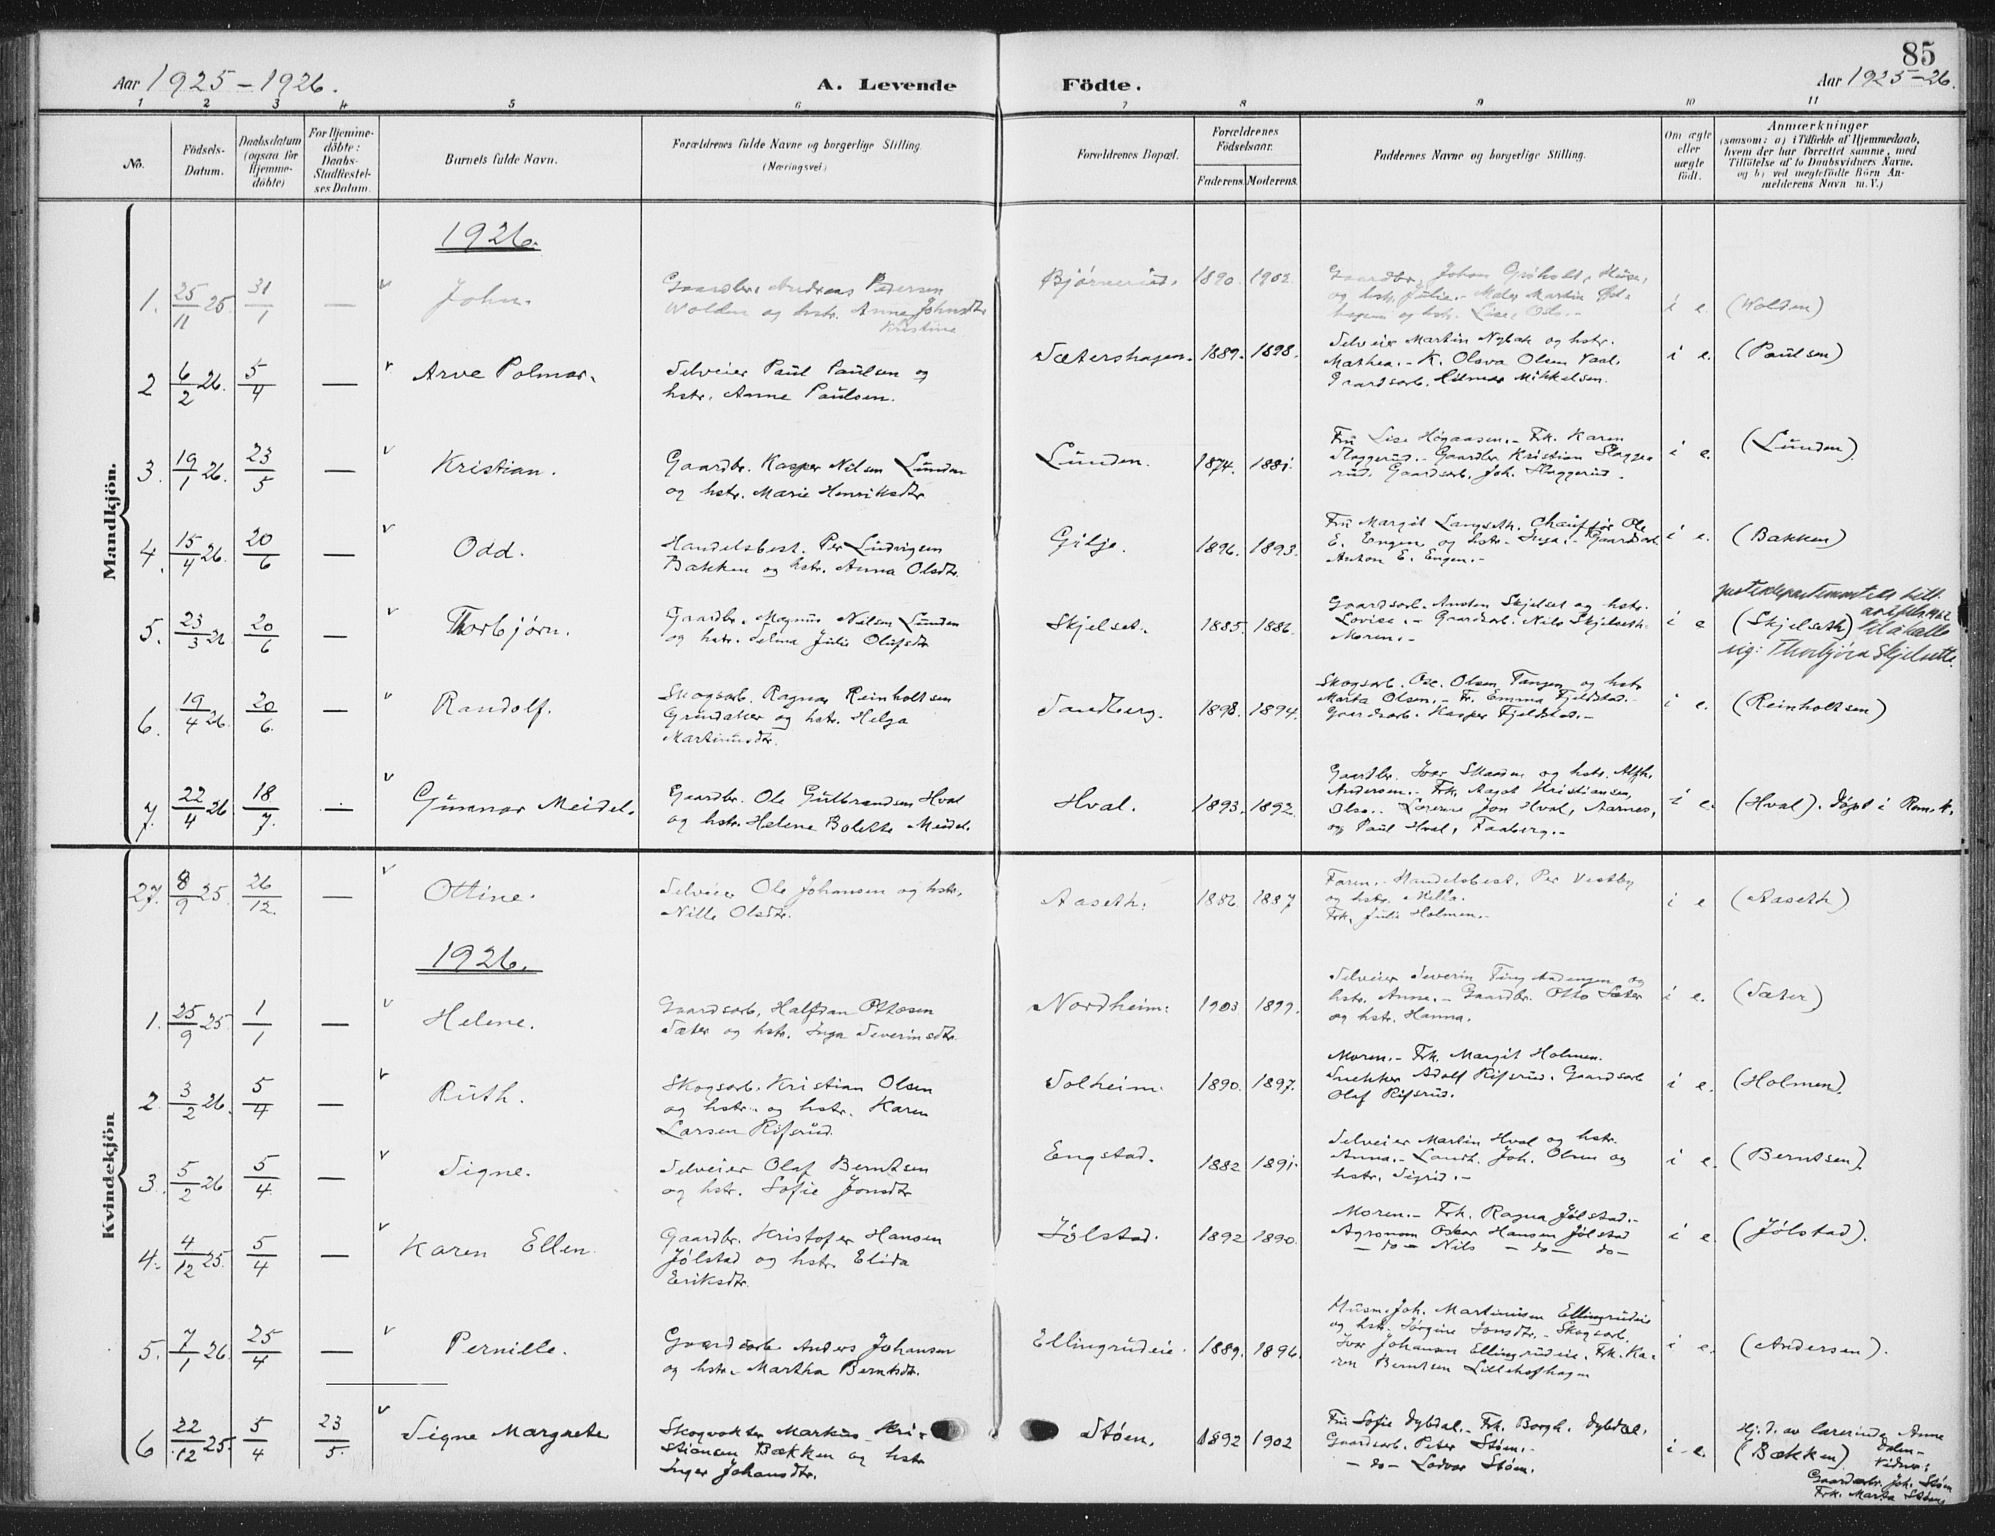 85
Aar 1925-1926.
A. Levende Födte.
Aar 1925-26.
1 2 3 4 5 6 7 8 9 10 11
No.
Födsels-
Datum.
Daabsdatum
(ogsaa for
Hjemme-
döbte)
For Hjemme-
döbte:
Daabs-
Stadfæstel-
ses Datum.
Barnets fulde Navn.
Forældrenes fulde Navne og borgerlige Stilling.
(Næringsvei)
Forældrenes Bopæl.
Forældrenes
Födselsaar.
Faderens. Moderens.
Faddernes Navne og borgerlige Stilling.
Om ægte
eller
uægte
födt.
Anmærkninger
(saasom: a) i Tilfælde af Hjemmedaab,
hvem der har forrettet samme, med
Tilföielse af to Daabsvidners Navne.
og b) ved uægtefödte Börn An-
melderens Navn m. V.)
Mandkjön.
1926.
1. 25/11 25. 31/1 — John.
Gaardbr. Andreas Pedersen
Wolden og hstr. Anne Johnsdtr
Kristine
Bjørnerud. 1890. 1902.
Gaardbr. Johan Grøholt, Huse,
og hstr. Julie. - Maler Martin
og hstr. Lise, Oslo. -
i e. (Wolden)
2 6/2 26. 5/4 — Arve Polmar.
Selveier Paul Paulsen og
hstr. Anne Paulsen.
Sætershagen. 1889. 1898.
Selveier Martin Nybak og hstr.
Mathea. - K. Olava Olsen Vaal.
Gaardsarb. Hilmar Mikkelsen.
i e. (Paulsen)
3. 19/1 26. 23/5 — Kristian.
Gaardbr. Kasper Nilsen Lunden
og hstr. Marie Henriksdtr
Lunden. 1874. 1881.
Fru Lise Høgaasen. - Frk. Karen
Slaggerud. - Gaardbr. Kristian Slagge-
rud. Gaardsarb. Joh. Slaggerud.
i e. (Lunden).
4. 15/4 26. 20/6 — Odd.
Handelsbest. Per Ludvigsen
Bakken og hstr. Anna Olsdtr.
Gilje. 1896. 1893.
Fru Margit Langseth. Chauffør Ole
E. Engen og hstr. Inga. - Gaardsarb.
Anton E. Engen. -
i e. (Bakken)
5. 23/3 26 20/6 — Thorbjørn.
Gaardbr. Magnus Nilsen Lunden
og hstr. Selma Julie Olufsdtr
Skjelset. 1885. 1886.
Gaardsarb. Ansten Skjelset og hstr.
Lovise. - Gaardsarb. Nils Skjelseth.
Moren. -
i e (Skjelseth)
justisdepartementets bill.
til å kalle
sig: Thorbjørn Skjelseth.
6. 19/4 26. 20/6. — Randolf.
Skogsarb. Ragnar Reinholtsen
Grindaker og hstr. Helga
Martinusdtr.
Sandberg. 1898. 1894.
Skogsarb. Osc. Olsen Tangen og hstr
Marta Olsen. - Fr. Emma Fjeldstad. -
Gaardsarb. Kasper Fjeldstad. -
i e. (Reinholtsen)
7. 22/4 26. 18/7. — Gunnar Meidel.
Gaardbr. Ole Gulbrandsen Hval
og hstr. Helene Bolette Meidel.
Hval. 1893. 1892.
Gaardbr. Ivar Skaaden og hstr. Alfh.
Andersen. - Frk. Aagot Kristiansen,
Oslo. - Lærerne Jon Hval, Aarnes,
og Paul Hval, Faaberg. -
i e. (Hval). Døpt i Rom. k.
Kvindekjön
27. 8/9 25. 26/12. — Ottine.
Selveier Ole Johansen og hstr.
Nille Olsdtr.
Aaseth. 1882 1887
Faren. - Handelsbest. Per Vestby
og hstr. Milla.
Frk. Julie Holmen. -
i e (Aaseth)
1926.
1. 25/9 25 1/1 — Helene.
Gaardsarb. Halfdan Ottosen
Sæter og hstr. Inga Severinsdtr.
Nordheim. 1903 1899.
Selveier Severin Tingstadengen og
hstr. Anne. - Gaardbr. Otto Sæter
og hstr. Hanna.
i e. (Sæter)
2. 3/2 26. 5/4 — Ruth.
Skogsarb. Kristian Olsen
og hstr. og hstr. Karen
Larsen Rifsrud.
Solheim. 1890. 1897.
Moren. - Frk. Margit Holmen.
Snekker Adolf Rifsrud. Gaardsarb
Olaf Rifsrud.
i e. (Holmen).
3. 5/2 26 5/4. — Signe.
Selveier Olaf Berntsen
og hstr. Sofie Jonsdtr
Engstad. 1882 1891.
Selveier Martin Hval og hstr.
Anna. - Landh. Joh. Olsen og
hstr. Sigrid. -
i e. (Berntsen).
4. 4/12 25. 5/4 — Karen Ellen.
Gaardbr. Kristofer Hansen
Jølstad og hstr. Elida
Eriksdtr.
Jølstad. 1892 1890.
Moren. - Frk. Ragna Jølstad. -
Agronom Oskar Hansen Jølstad
— do — Nils — do — do —
i e. (Jølstad).
5. 7/1 26. 25/4 — Pernille.
Gaardsarb. Anders Johansen
og hstr. Martha Berntsdtr.
Ellingrudeie. 1889. 1896.
Husm. Joh. Martinusen Ellingrudeie
og hstr. Jørgine Jonsdtr. - Skogsarb.
Ivar Johansen Ellingrudeie. Frk. Ka-
ren Berntsen Lillehofhagen
i e. (Andersen).
6 22/12 25. 5/4 23/5. Signe Margrete
Skogvokter Markus Kri-
stiansen Bækken og hstr
Inger Johansdtr.
Støen. 1892 1902
Fru Sofie Dybdal. Frk. Borgh. Dybdal.
Gaardsarb. Peter Støen. -
— do — Lodvar Støen.
i - e.
Hj. d. av lærerinde Anne
Dalen -
(Bækken). Vidner:
Gaardarbr. Joh. Støen
Frk. Marta Støen